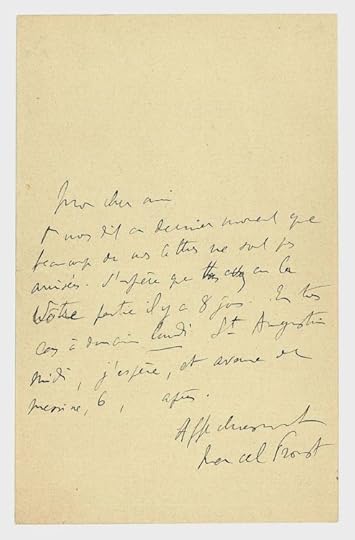 Mon cher ami
nous dit au dernier moment que
beaucoup de nos lettres ne sont pas
arrivées. J'espère que la
vôtre partie il y a 8 jours. En tous
cas à demain lundi St Augustin
midi, j'espère, et avenue de
messine, 6, après.
Affectueusement
Marcel Proust